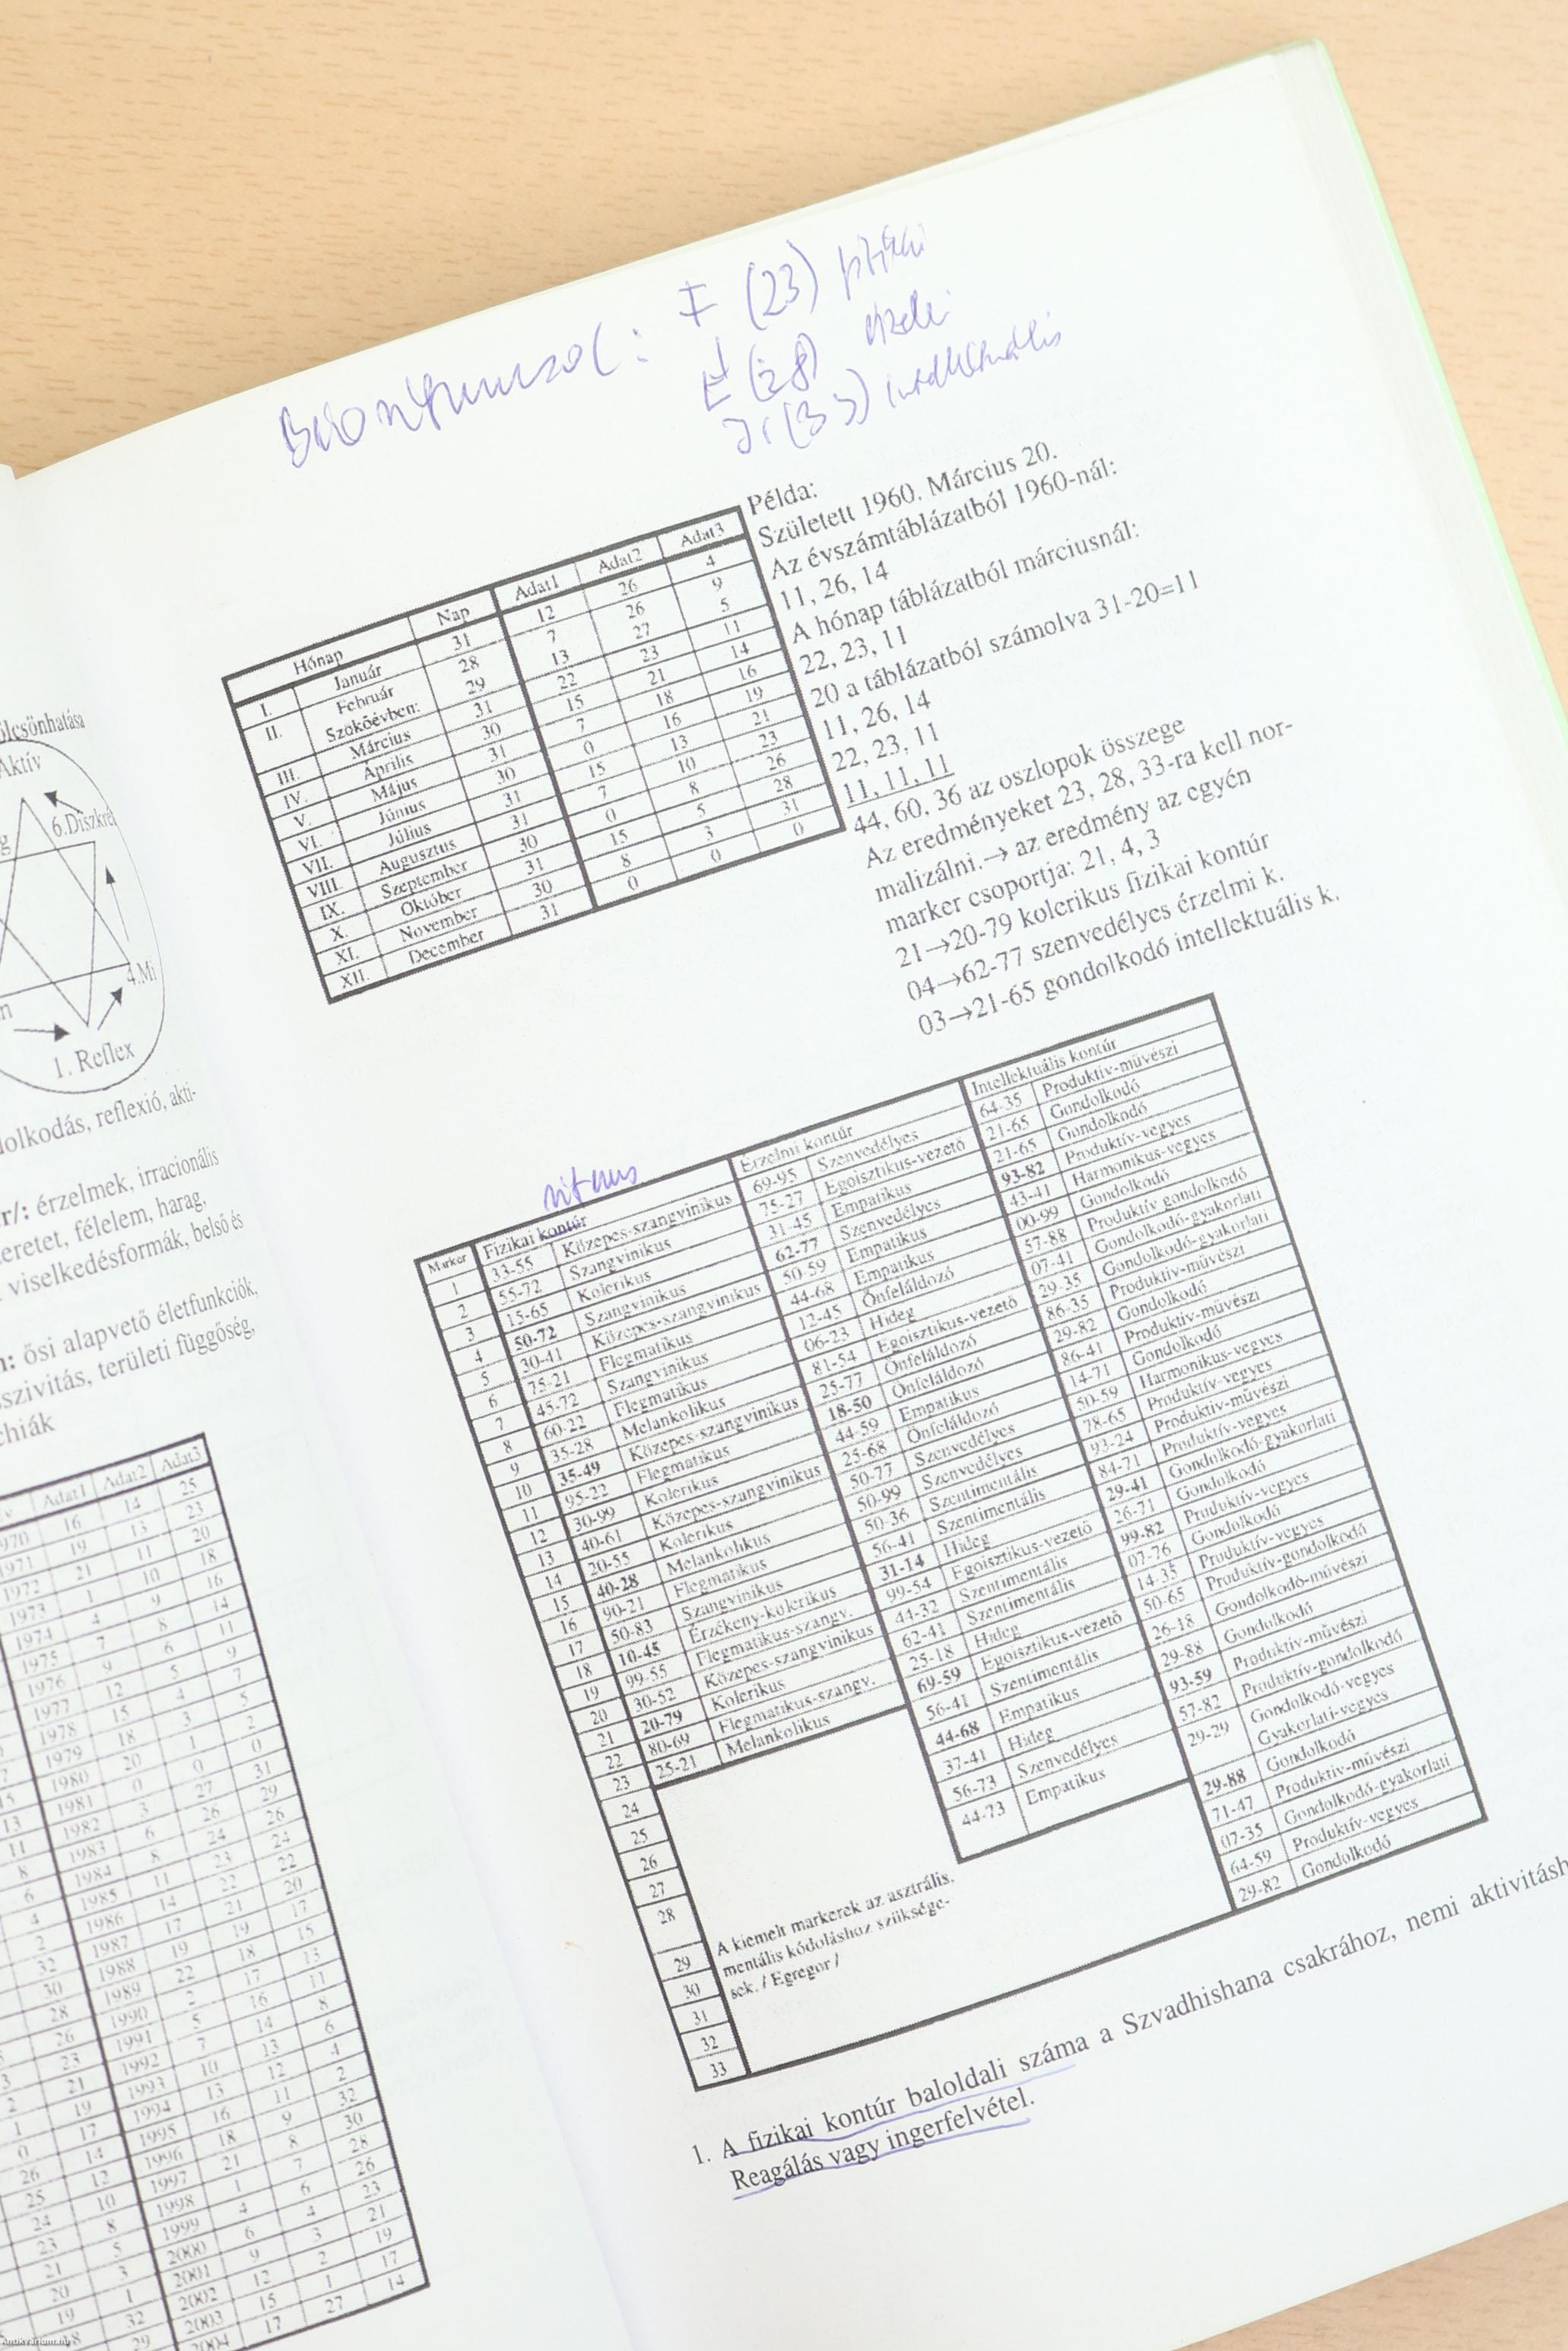 F (23) fizikai
E (28) érzelmi
I (33) intellektuális
ölcsönhatása
Aktív
6.Diszkré
4.Mi
1. Reflex
dolkodás, reflexió, akti-
érzelmek, irracionális
eretet, félelem, harag,
viselkedésformák, belső és
ősi alapvető életfunkciók,
sszivitás, területi függőség,
chiák
Adat1 Adat2 Adat3
1970 16 14 25
1971 19 13 23
1972 21 11 20
1973 1 10 18
1974 4 9 16
1975 7 8 14
1976 9 6 11
1977 12 5 9
1978 15 4 7
1979 18 3 5
1980 20 1 2
1981 0 0 0
1982 3 27 31
1983 6 26 29
1984 8 24 26
1985 11 23 24
1986 14 22 22
1987 17 21 20
1988 19 19 17
1989 22 18 15
1990 2 17 13
1991 5 16 11
1992 7 14 8
1993 10 13 6
1994 13 12 4
1995 16 11 2
1996 18 9 32
1997 21 8 30
1998 1 7 28
1999 4 6 26
2000 6 4 23
2001 9 3 21
2002 12 2 19
2003 15 1 17
2004 17 27 14
Hónap Nap Adat1 Adat2 Adat3
I. Január 31 12 26 4
II. Február 28 7 26 9
Szökőévben: 29 13 27 5
III. Március 31 22 23 11
IV. Április 30 15 21 14
V. Május 31 7 18 16
VI. Június 30 0 16 19
VII. Július 31 15 13 21
VIII. Augusztus 31 7 10 23
IX. Szeptember 30 0 8 26
X. Október 31 15 5 28
XI. November 30 8 3 31
XII. December 31 0 0 0
Példa:
Született 1960. Március 20.
Az évszámtáblázatból 1960-nál:
11, 26, 14
A hónap táblázatból márciusnál:
22, 23, 11
20 a táblázatból számolva 31-20=11
11, 26, 14
22, 23, 11
11, 11, 11
44, 60, 36 az oszlopok összege
Az eredményeket 23, 28, 33-ra kell nor-
malizálni.→ az eredmény az egyén
marker csoportja: 21, 4, 3
21→20-79 kolerikus fizikai kontúr
04→62-77 szenvedélyes érzelmi k.
03→21-65 gondolkodó intellektuális k.
ritmus
Marker Fizikai kontúr Érzelmi kontúr Intellektuális kontúr
1 33-55 Közepes-szangvinikus 69-95 Szenvedélyes 64-35 Produktív-művészi
2 55-72 Szangvinikus 75-27 Egoisztikus-vezető 21-65 Gondolkodó
3 15-65 Kolerikus 31-45 Empatikus 21-65 Gondolkodó
4 50-72 Szangvinikus 62-77 Szenvedélyes 93-82 Produktív-vegyes
5 30-41 Közepes-szangvinikus 50-59 Empatikus 43-41 Harmonikus-vegyes
6 75-21 Flegmatikus 44-68 Empatikus 00-99 Gondolkodó
7 45-72 Szangvinikus 12-45 Önfeláldozó 57-88 Produktív gondolkodó
8 60-22 Flegmatikus 06-23 Hideg 07-41 Gondolkodó-gyakorlati
9 35-28 Melankolikus 81-54 Egoisztikus-vezető 29-35 Gondolkodó-gyakorlati
10 35-49 Közepes-szangvinikus 25-77 Önfeláldozó 86-35 Produktív-művészi
11 95-22 Flegmatikus 18-50 Önfeláldozó 29-82 Gondolkodó
12 30-99 Kolerikus 44-59 Empatikus 86-41 Produktív-művészi
13 40-61 Közepes-szangvinikus 25-68 Önfeláldozó 14-71 Gondolkodó
14 20-55 Kolerikus 50-77 Szenvedélyes 50-59 Harmonikus-vegyes
15 40-28 Melankolikus 50-99 Szenvedélyes 78-65 Produktív-vegyes
16 90-21 Flegmatikus 50-36 Szentimentális 93-24 Produktív-művészi
17 50-83 Szangvinikus 56-41 Szentimentális 84-71 Produktív-vegyes
18 10-45 Érzékeny-kolerikus 31-14 Hideg 29-41 Gondolkodó-gyakorlati
19 99-55 Flegmatikus-szangv. 99-54 Egoisztikus-vezető 26-71 Gondolkodó
20 30-52 Közepes-szangvinikus 44-32 Szentimentális 99-82 Produktív-vegyes
21 20-79 Kolerikus 62-41 Szentimentális 07-76 Gondolkodó
22 80-69 Flegmatikus-szangv. 25-18 Hideg 14-35 Produktív-vegyes
23 25-21 Melankolikus 69-59 Egoisztikus-vezető 50-65 Produktív-gondolkodó
24 56-41 Szentimentális 26-18 Gondolkodó-művészi
25 44-68 Empatikus 29-88 Gondolkodó
26 37-41 Hideg 93-59 Produktív-művészi
27 56-73 Szenvedélyes 57-82 Produktív-gondolkodó
28 44-73 Empatikus 29-29 Gondolkodó-vegyes
Gyakorlati-vegyes
29 29-88 Gondolkodó
30 71-47 Produktív-művészi
31 07-35 Gondolkodó-gyakorlati
32 64-59 Produktív-vegyes
33 29-82 Gondolkodó
A kiemelt markerek az asztrális,
mentális kódoláshoz szüksége-
sek. / Egregor /
1. A fizikai kontúr baloldali száma a Szvadhishana csakrához, nemi aktivitásh
Reagálás vagy ingerfelvétel.
Antikvárium.hu